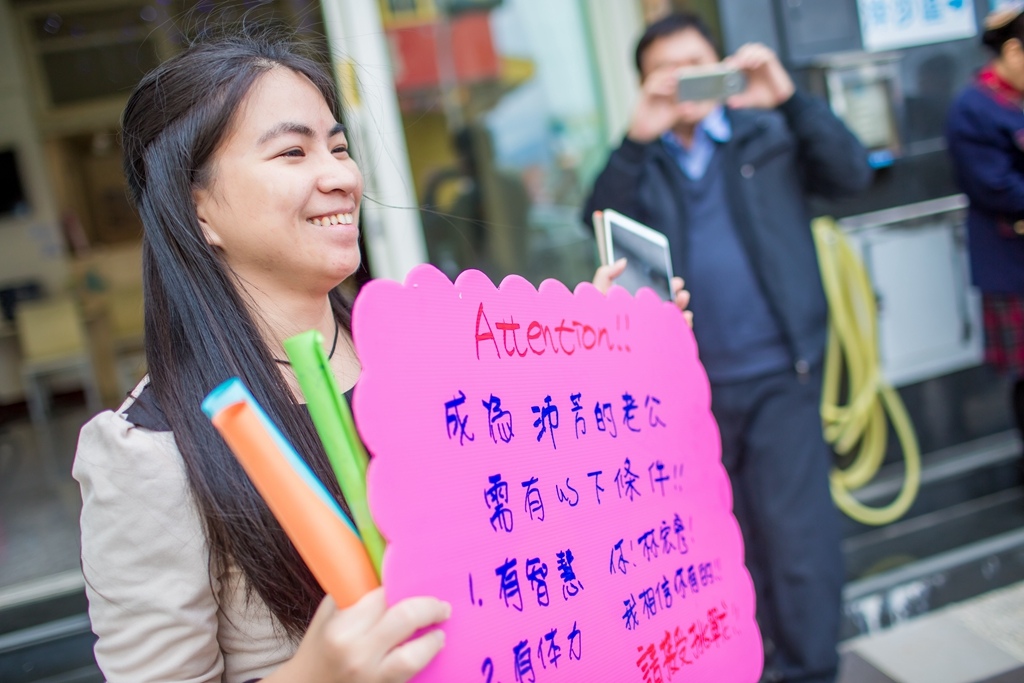 Attention!!
成為沛芳的老公
需有以下條件!!
1. 有智慧
2. 有体力
你!林宏
我相信你有的!!
請接受挑戰